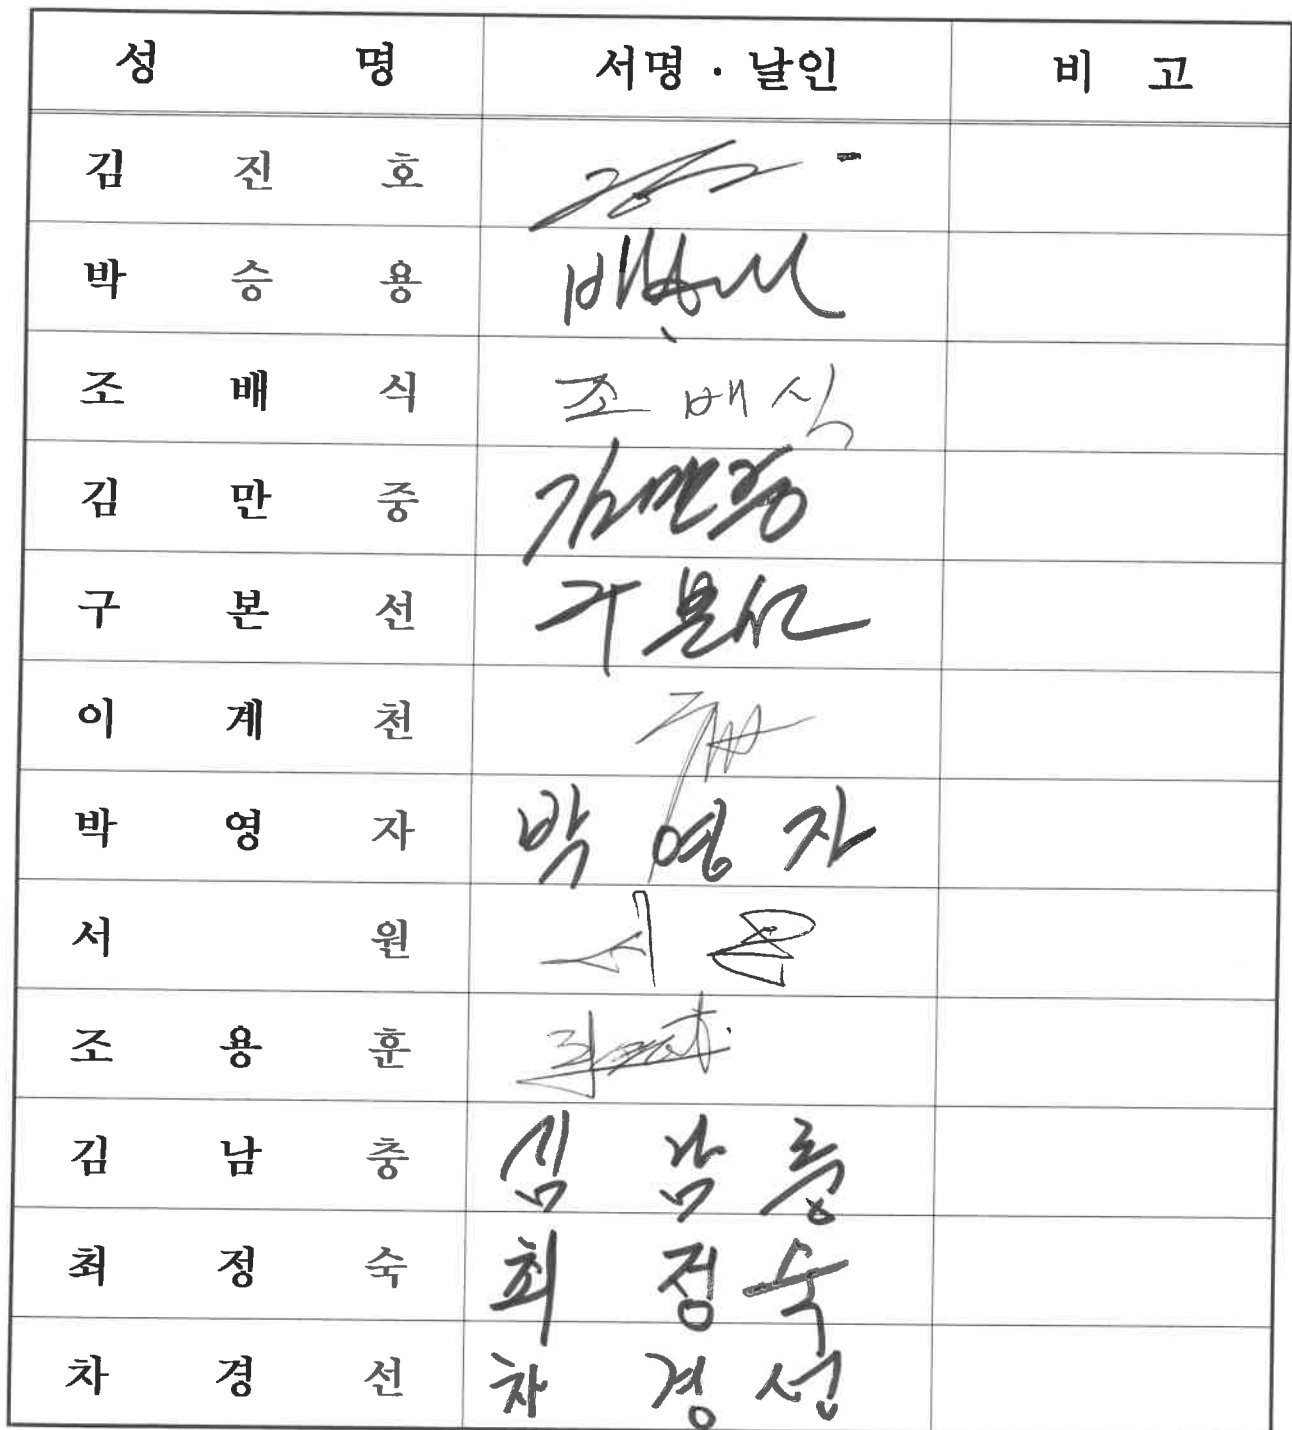 성 명 서명·날인 비 고
김 진 호
박 승 용
조 배 식 조 배 식
김 만 중 김만중
구 본 선 구본선
이 계 천
박 영 자 박 영 자
서 원 서
조 용 훈
김 남 충 김 남 충
최 정 숙 최 정 숙
차 경 선 차 경 선